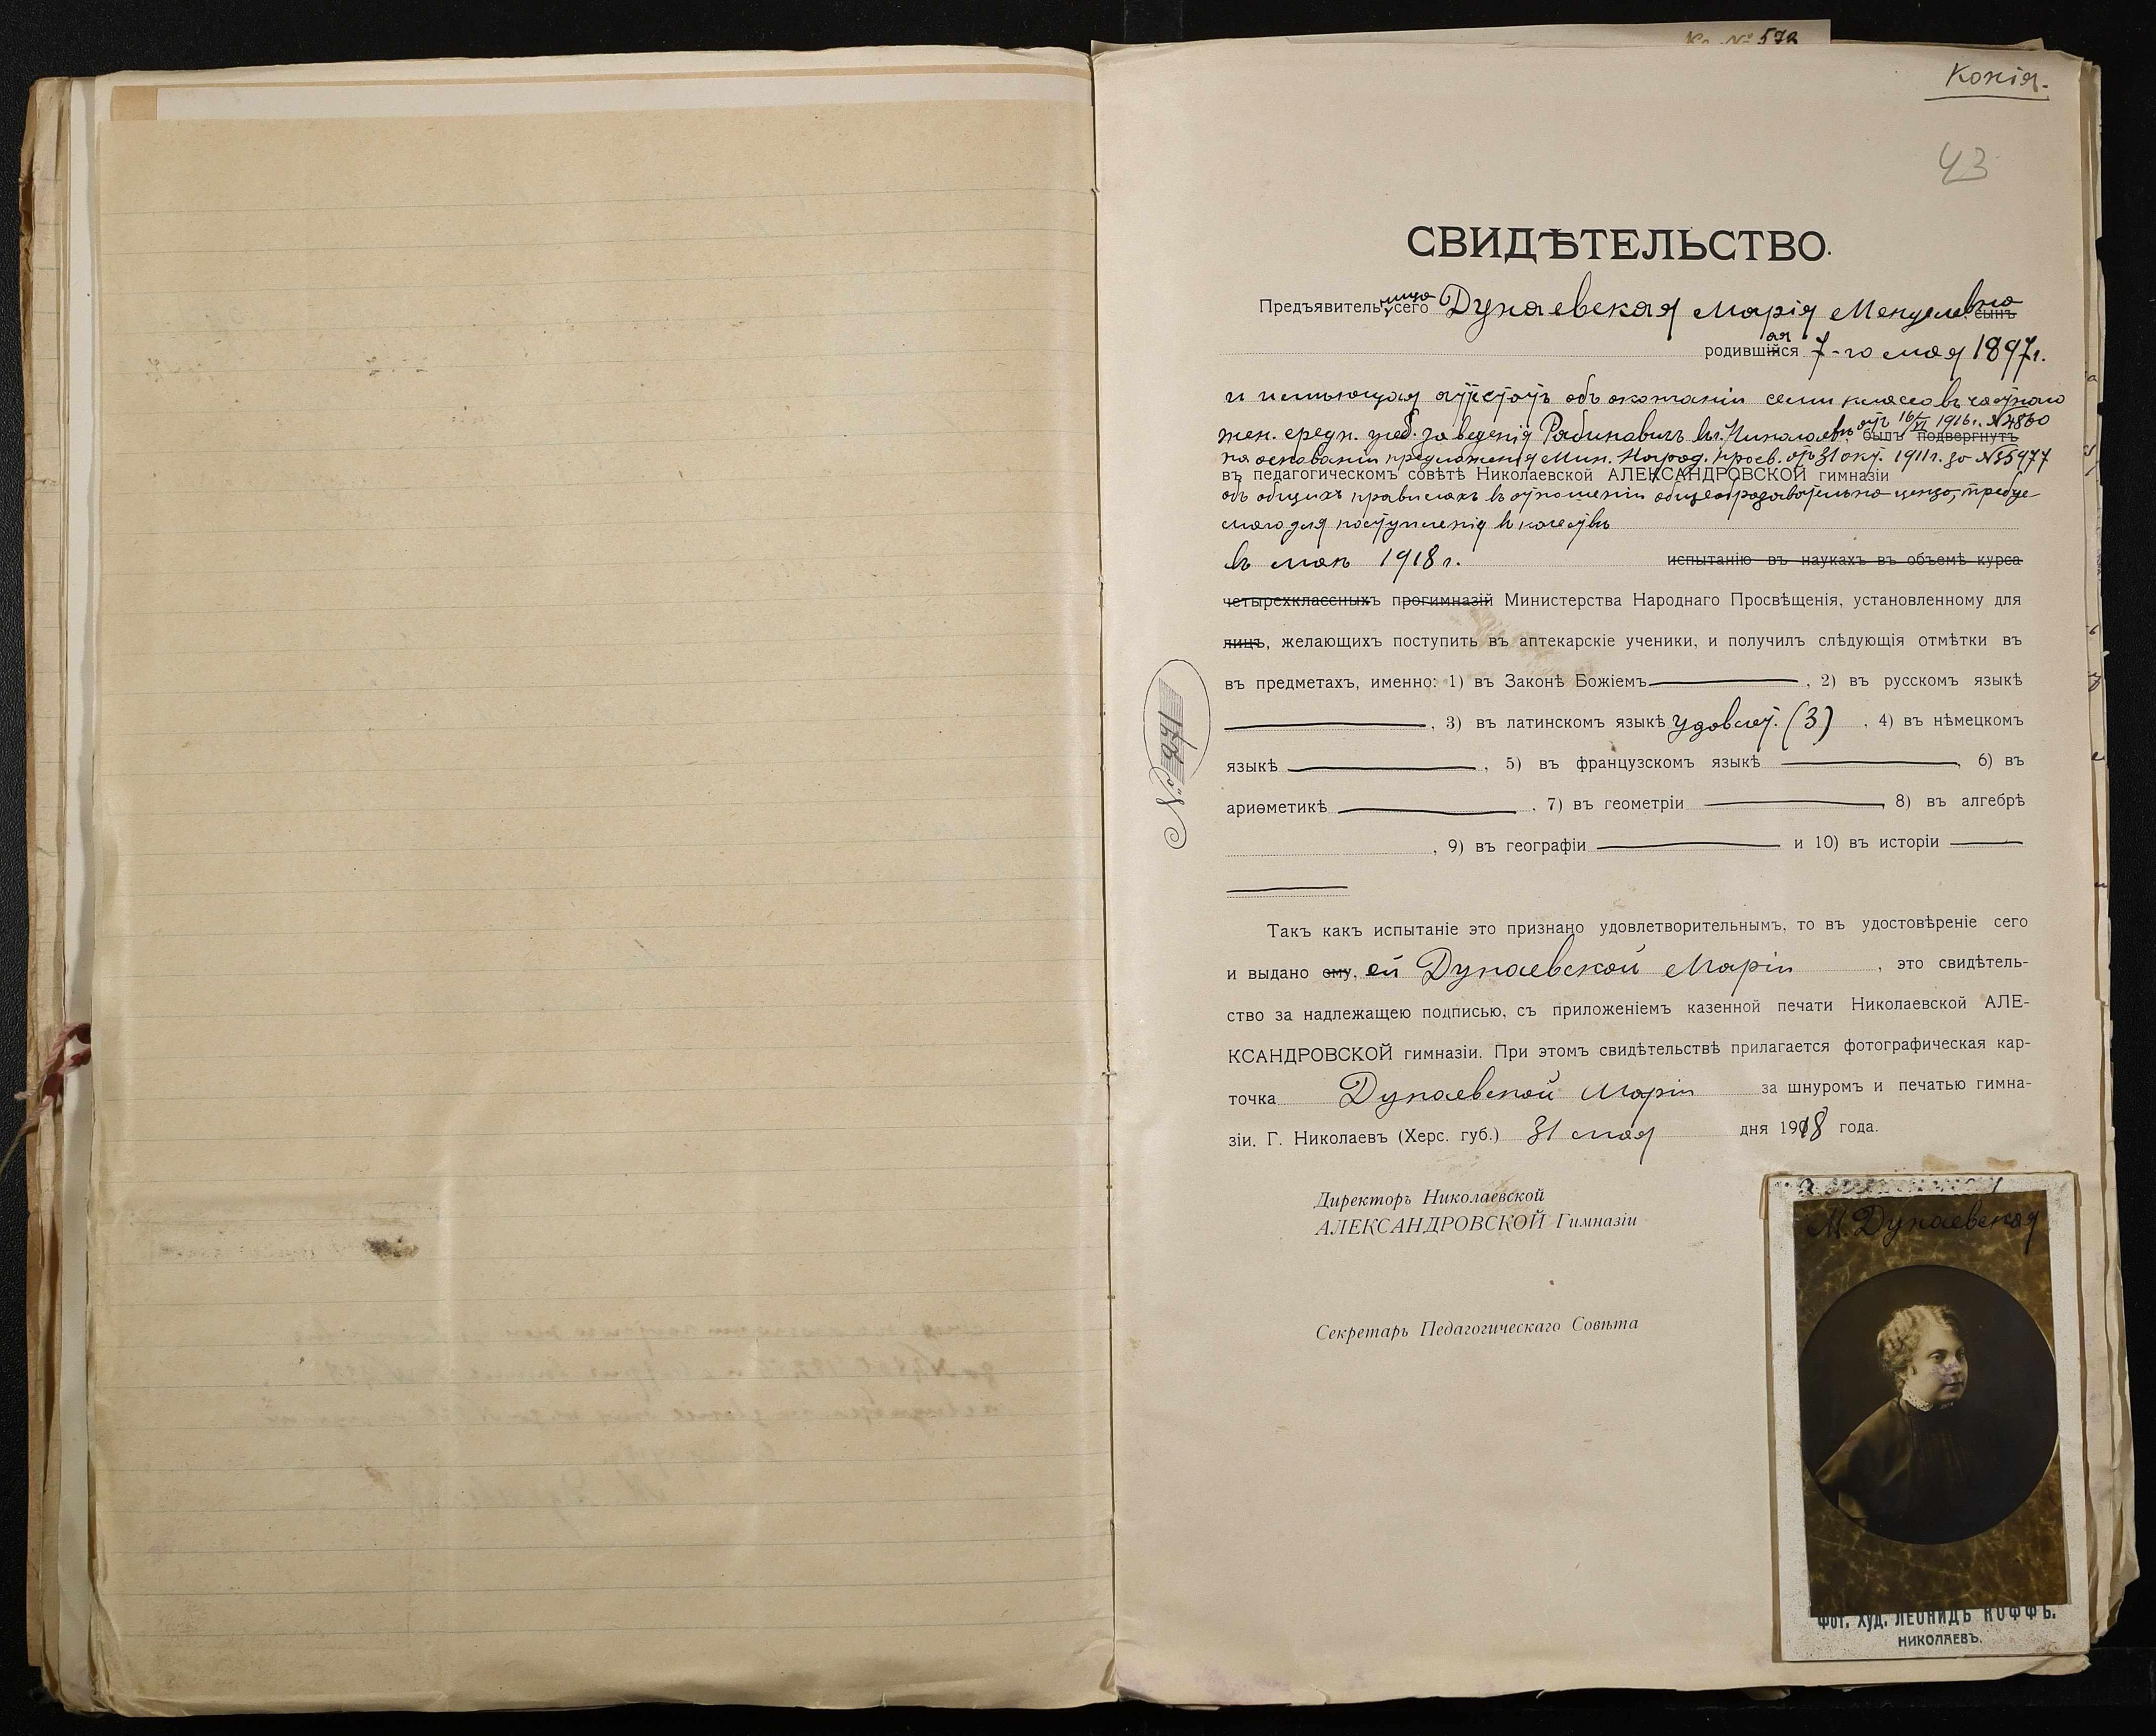 № 578
Копія.
43
СВИДѢТЕЛЬСТВО.
Предъявительница сего Дунаевская Марія Менделевна сынъ
родившійся ая 7-го мая 1897 г.
и имѣющая аттестатъ объ окончаніи семи классовъ частнаго
жен. средн. учеб. заведенія Рабиновичъ въ г. Николаевѣ отъ 16/VI 1916 г. № 4860 былъ подвергнутъ
на основаніи предложенія Мин. Народ. Просв. отъ 31 окт. 1911 г. за № 35977
въ педагогическомъ совѣтѣ Николаевской АЛЕКСАНДРОВСКОЙ гимназіи
объ общихъ правилахъ въ отношеніи общеобразовательно ценза, требуе-
маго для поступленія въ качествѣ
въ маѣ 1918 г. испытанію въ наукахъ въ объемѣ курса
четырехклассныхъ прогимназій Министерства Народнаго Просвѣщенія, установленному для
лицъ, желающихъ поступить въ аптекарскіе ученики, и получилъ слѣдующія отмѣтки въ
въ предметахъ, именно: 1) въ Законѣ Божіемъ , 2) въ русскомъ языкѣ
, 3) въ латинскомъ языкѣ удовлет. (3) , 4) въ нѣмецкомъ
языкѣ , 5) въ французскомъ языкѣ , 6) въ
ариѳметикѣ , 7) въ геометріи , 8) въ алгебрѣ
, 9) въ географіи и 10) въ исторіи
№ 1152
Такъ какъ испытаніе это признано удовлетворительнымъ, то въ удостовѣреніе сего
и выдано ому, ей Дунаевской Маріи , это свидѣтель-
ство за надлежащею подписью, съ приложеніемъ казенной печати Николаевской АЛЕ-
КСАНДРОВСКОЙ гимназіи. При этомъ свидѣтельствѣ прилагается фотографическая кар-
точка Дунаевской Маріи за шнуромъ и печатью гимна-
зіи. Г. Николаевъ (Херс. губ.) 31 мая дня 1918 года.
Директоръ Николаевской
АЛЕКСАНДРОВСКОЙ Гимназіи
Секретарь Педагогическаго Совѣта
М. Дунаевская
Фот. Худ. ЛЕОНИДЪ КОФФЪ.
НИКОЛАЕВЪ.